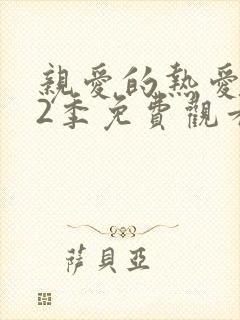 親愛的熱愛
2季免費觀
萨貝亞